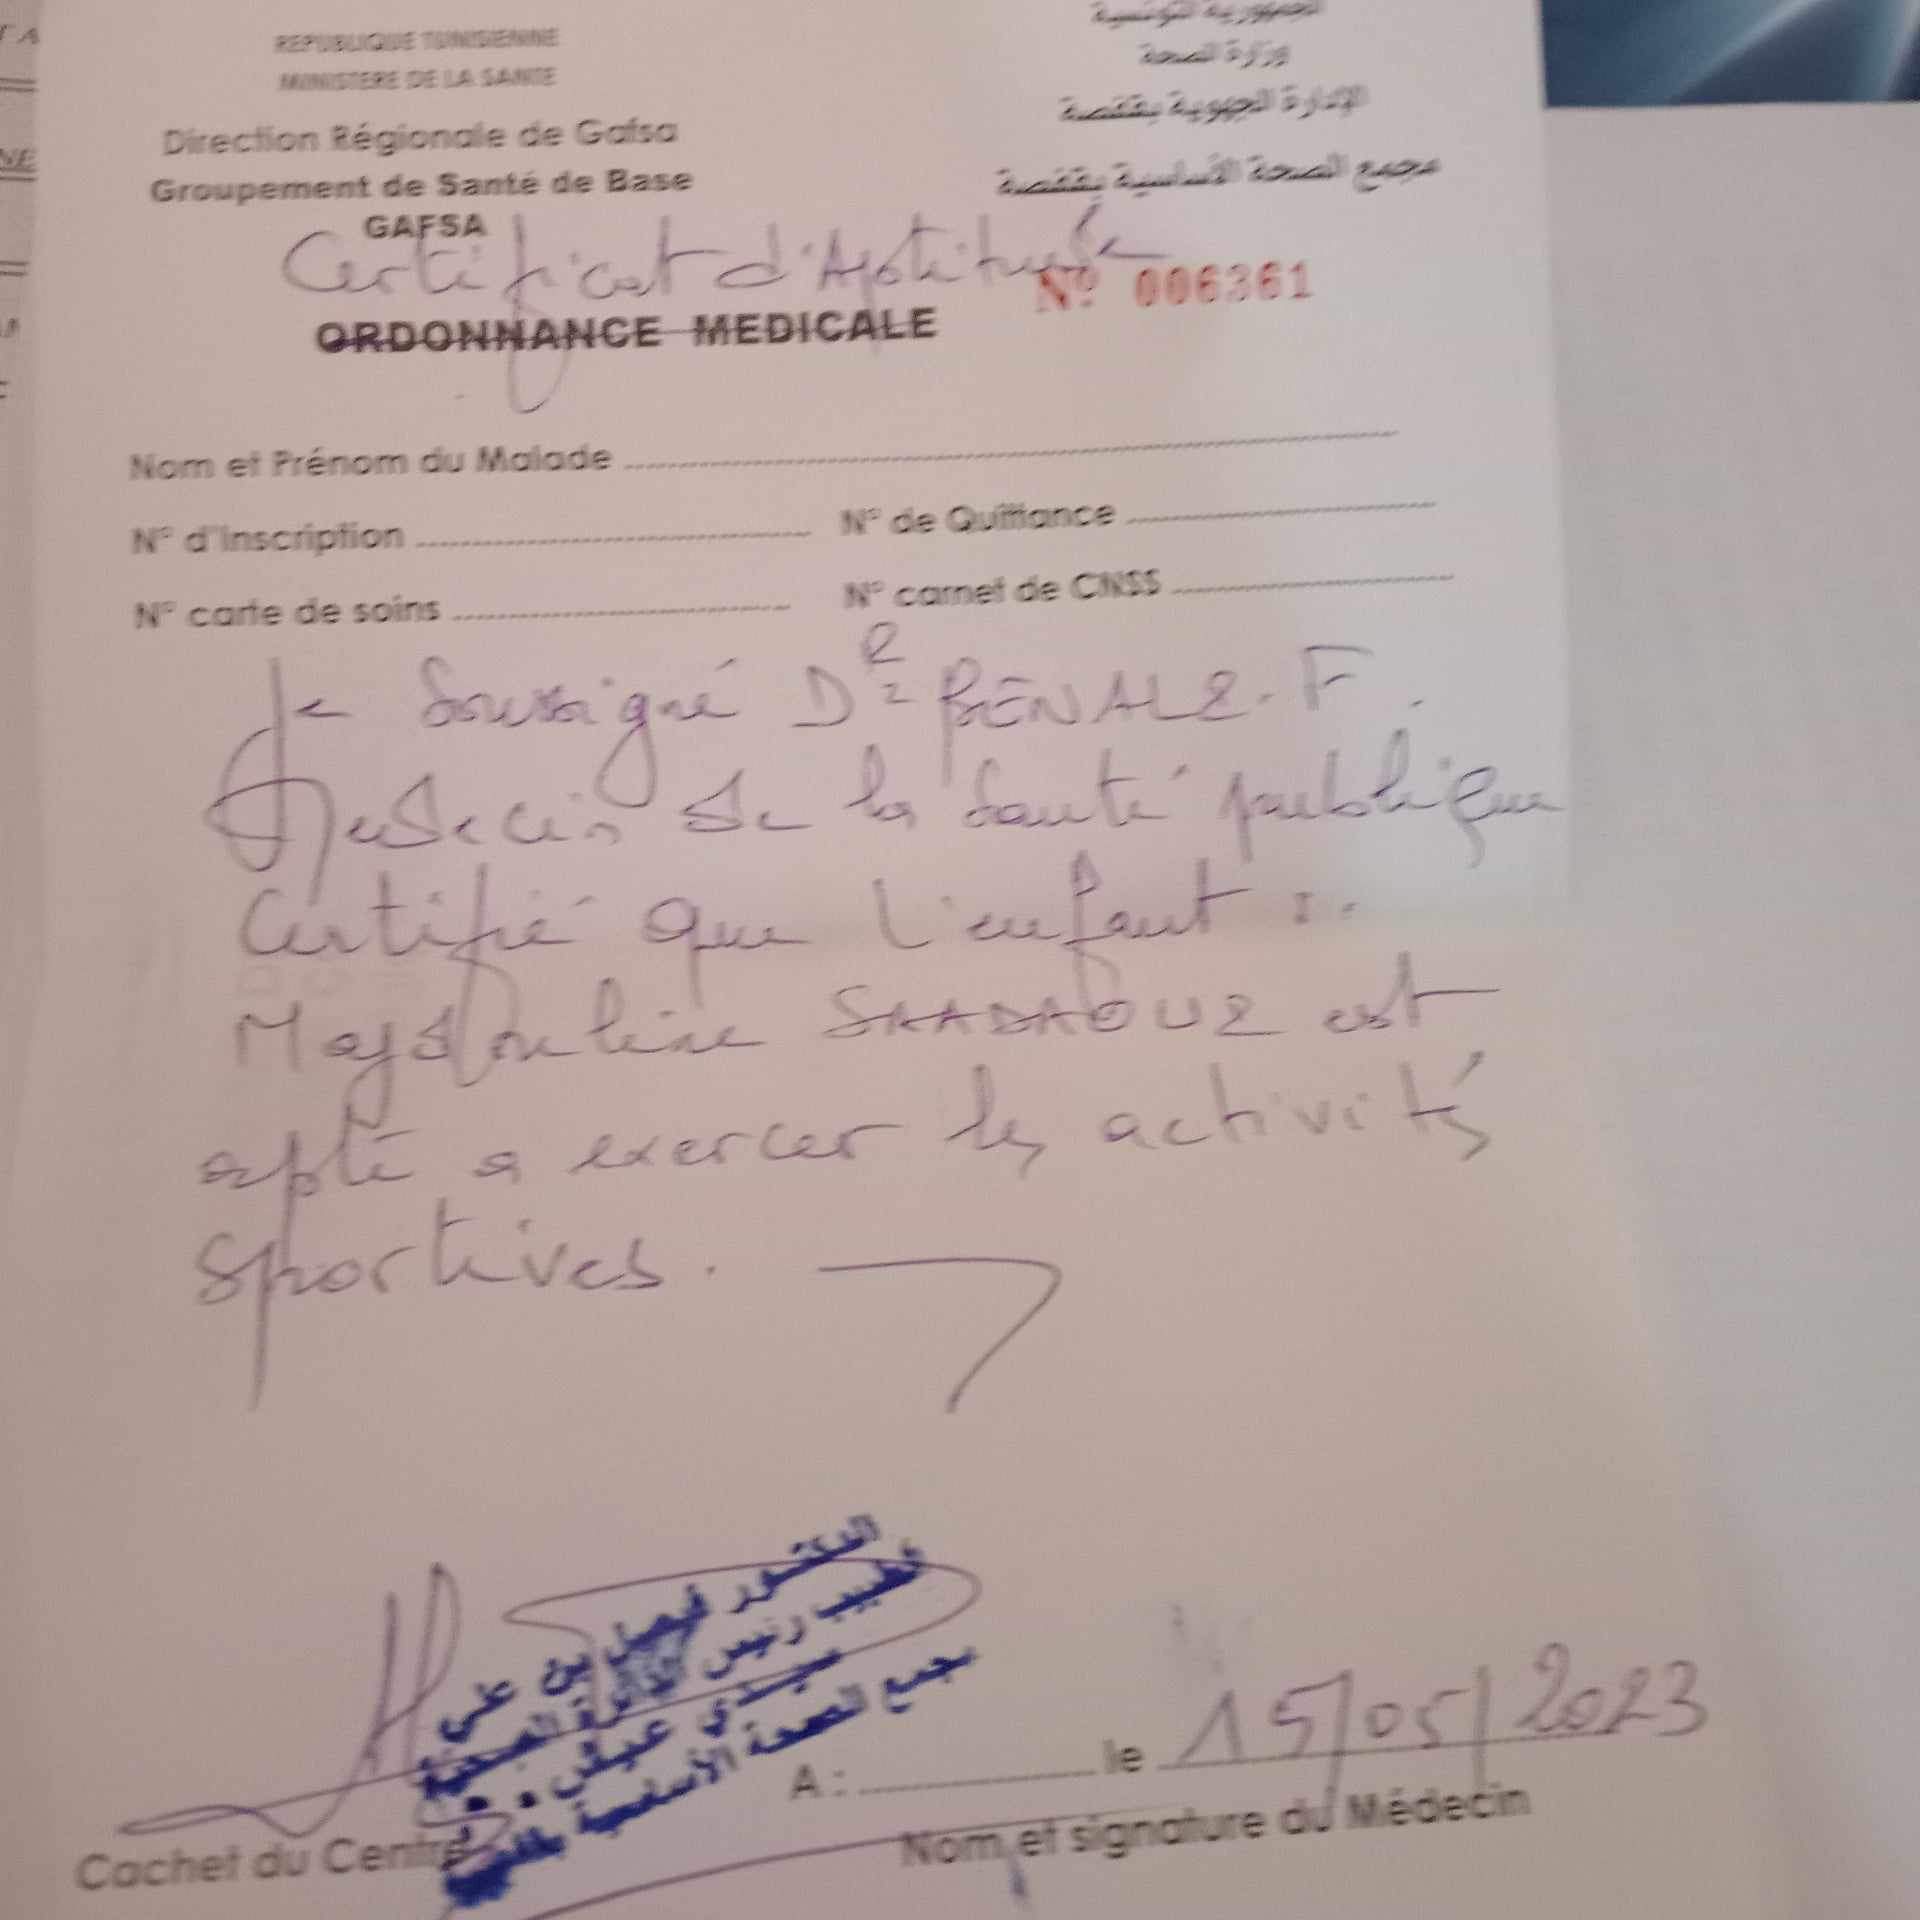 REPUBLIQUE TUNISIENNE
MINISTERE DE LA SANTE
Direction Régionale de Gafsa
Groupement de Santé de Base
GAFSA
الجمهورية التونسية
وزارة الصحة
الإدارة الجهوية بقفصة
مجمع الصحة الأساسية بقفصة
Certificat d'Aptitude
Nº 006361
ORDONNANCE MEDICALE
Nom et Prénom du Malade
N° d'Inscription N° de Quittance
N° carte de soins N° carnet de CNSS
Je Soussigné DR BENALI. F.
Medecin de la Santé publique
Certifié que l'enfant :.
Majdouline SAADAOUI est
apte a exercer les activités
Sportives.
الدكتور فيصل بن علي
طبيب رئيس الدائرة الصحية
سيدي عيش
مجمع الصحة الأساسية بقفصة
A : le 15/05/2023
Cachet du Centre
Nom et signature du Médecin